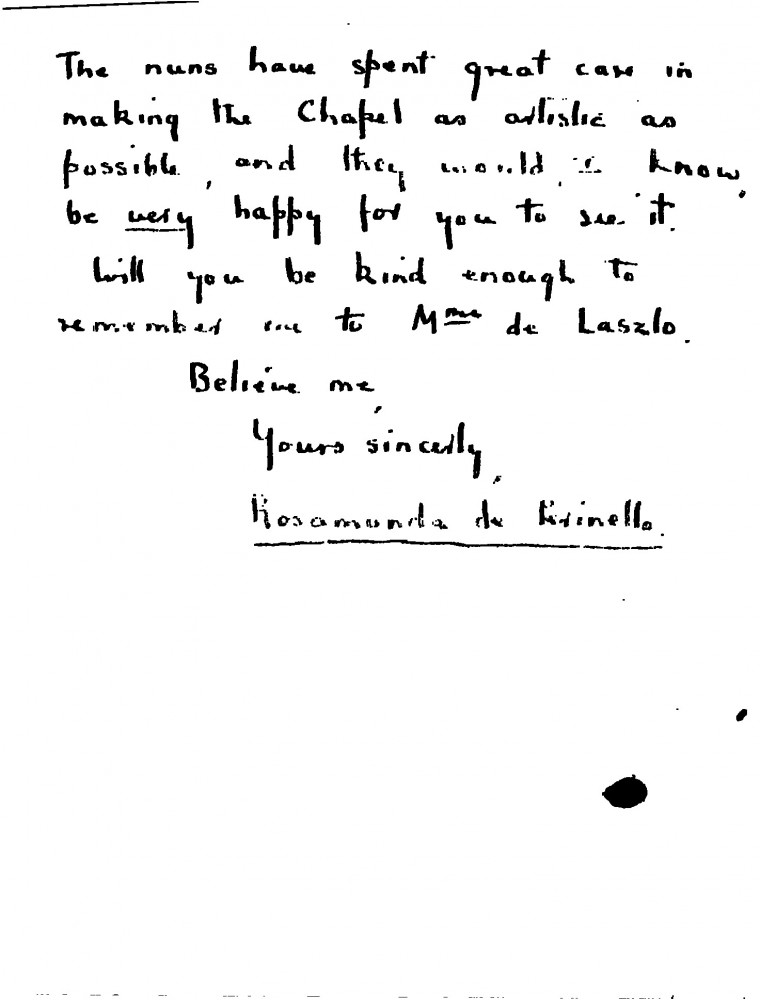 The nuns have spent great care in
making the Chapel as artistic as
possible, and they would, I know,
be very happy for you to see it.
Will you be kind enough to
remember me to Mme de Laszlo.
Believe me,
Yours sincerly,
Rosamunda de